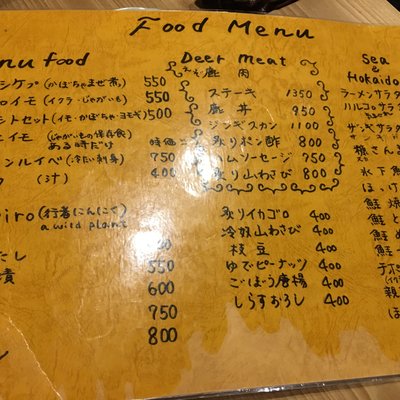 Food Menu
nu food
シケプ (かぼちゃまぜ煮) 550
ロイモ (イクラ・じゃがいも) 550
ットセット (イモ・かぼちゃ・ヨモギ) 500
イモ (じゃがいもの保存食) ある時だけ 時価
ンルイベ (冷たい刺身) 750
(汁) 400
iro (行者にんにく)
a wild plant
だし 550
漬 600
750
800
Deer meat
えぞ鹿肉
ステーキ 1350
鹿丼 950
ジンギスカン 1100
炙りポン酢 800
ムソーセージ 750
炙り山わさび 800
炙りイカゴロ 400
冷奴山わさび 400
枝豆 400
ゆでピーナッツ 400
ごぼう唐揚 400
しらすおろし 400
Sea
Hokkaido
ラーメンサラダ
ザンギサラダ
氷下魚
ほっけ
鮭
鮭と
鮭
鮭